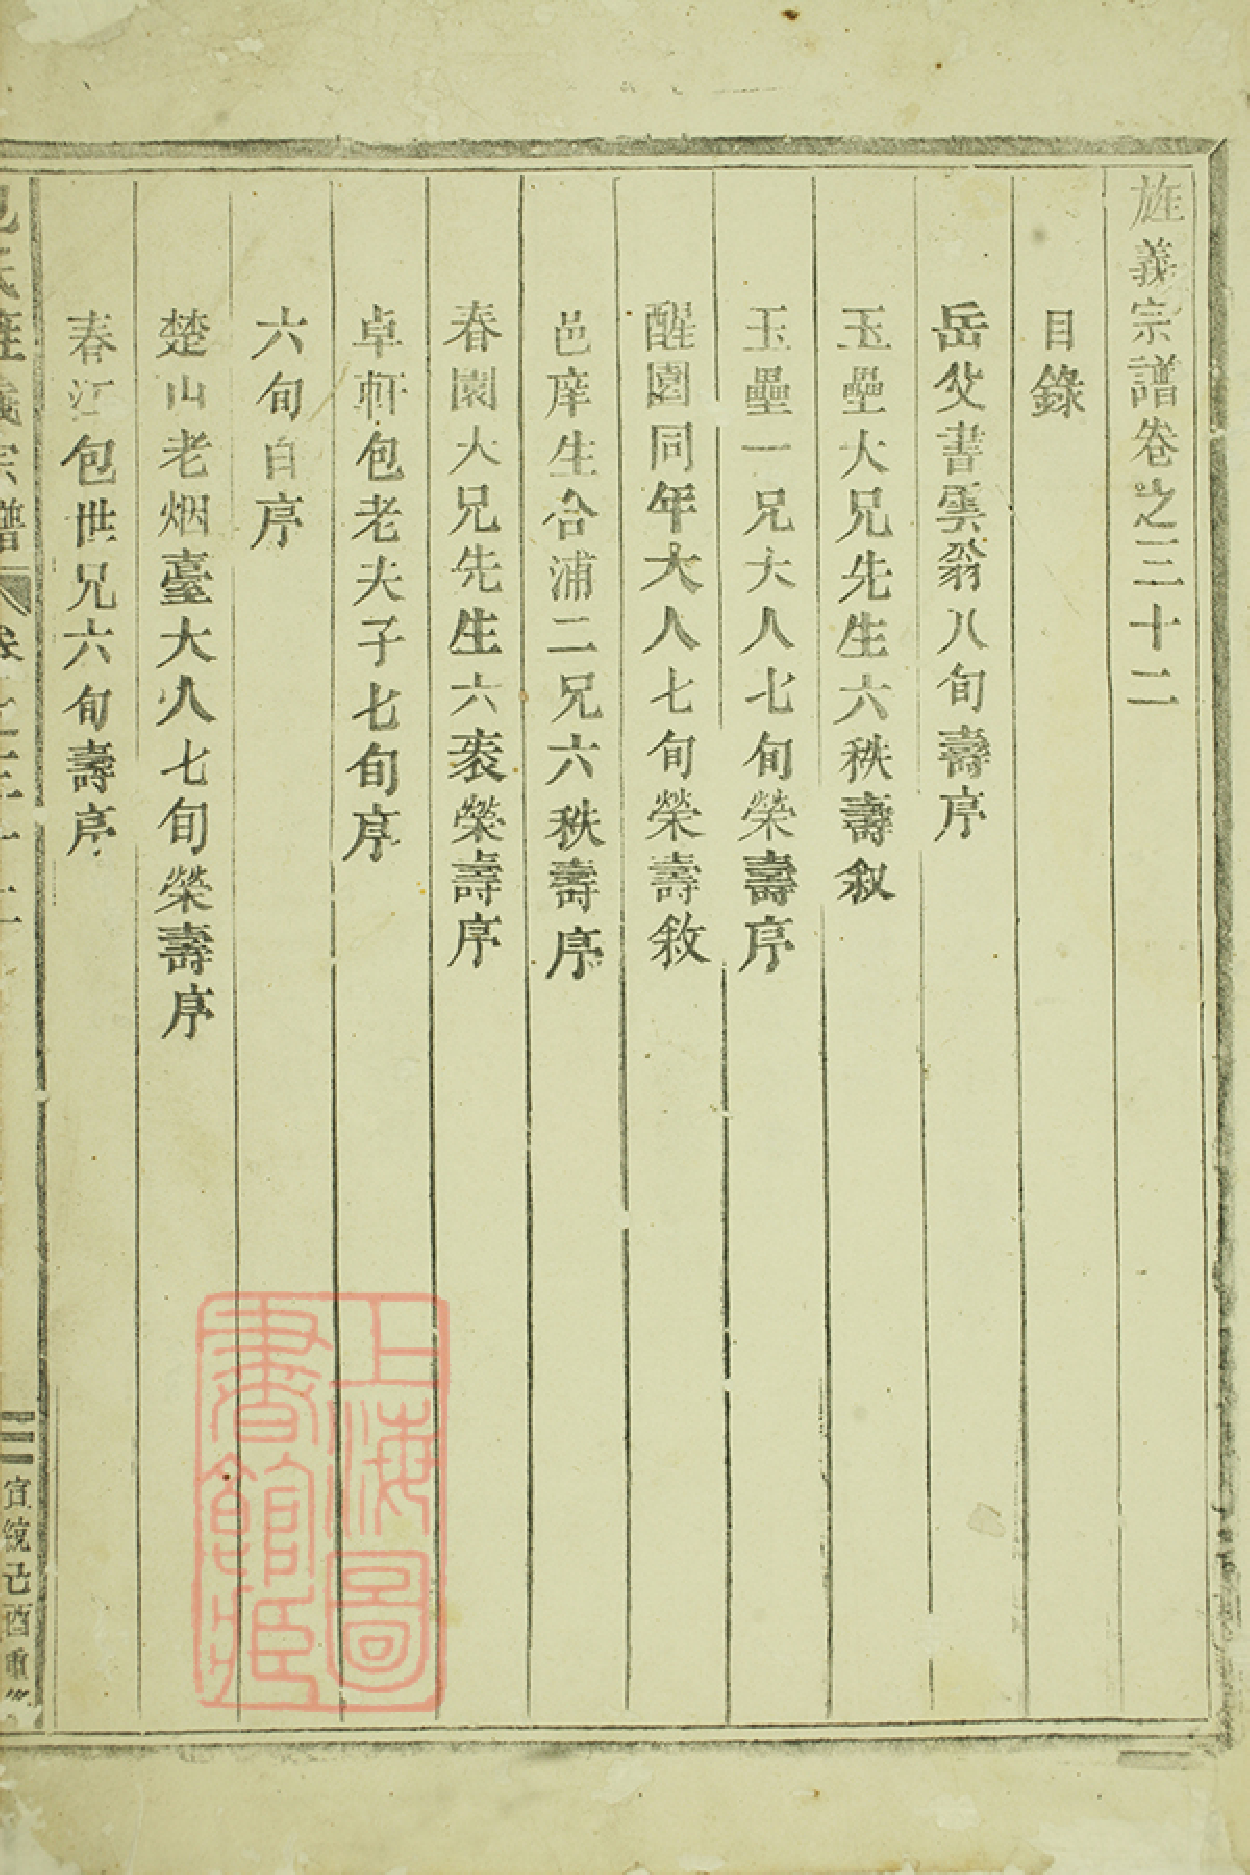 旌義宗譜卷之三十二
目錄
岳父書雲翁八旬壽序
玉壘大兄先生六秩壽叙
玉壘一兄大人七旬榮壽序
醒園同年大人七旬榮壽敘
邑庠生合浦二兄六秩壽序
春園大兄先生六袠榮壽序
卓軒包老夫子七旬序
六旬自序
楚山老烟臺大人七旬榮壽序
春江包世兄六旬壽序
包氏旌義宗譜 卷之三十二 宣統己酉重
上海圖
書館藏